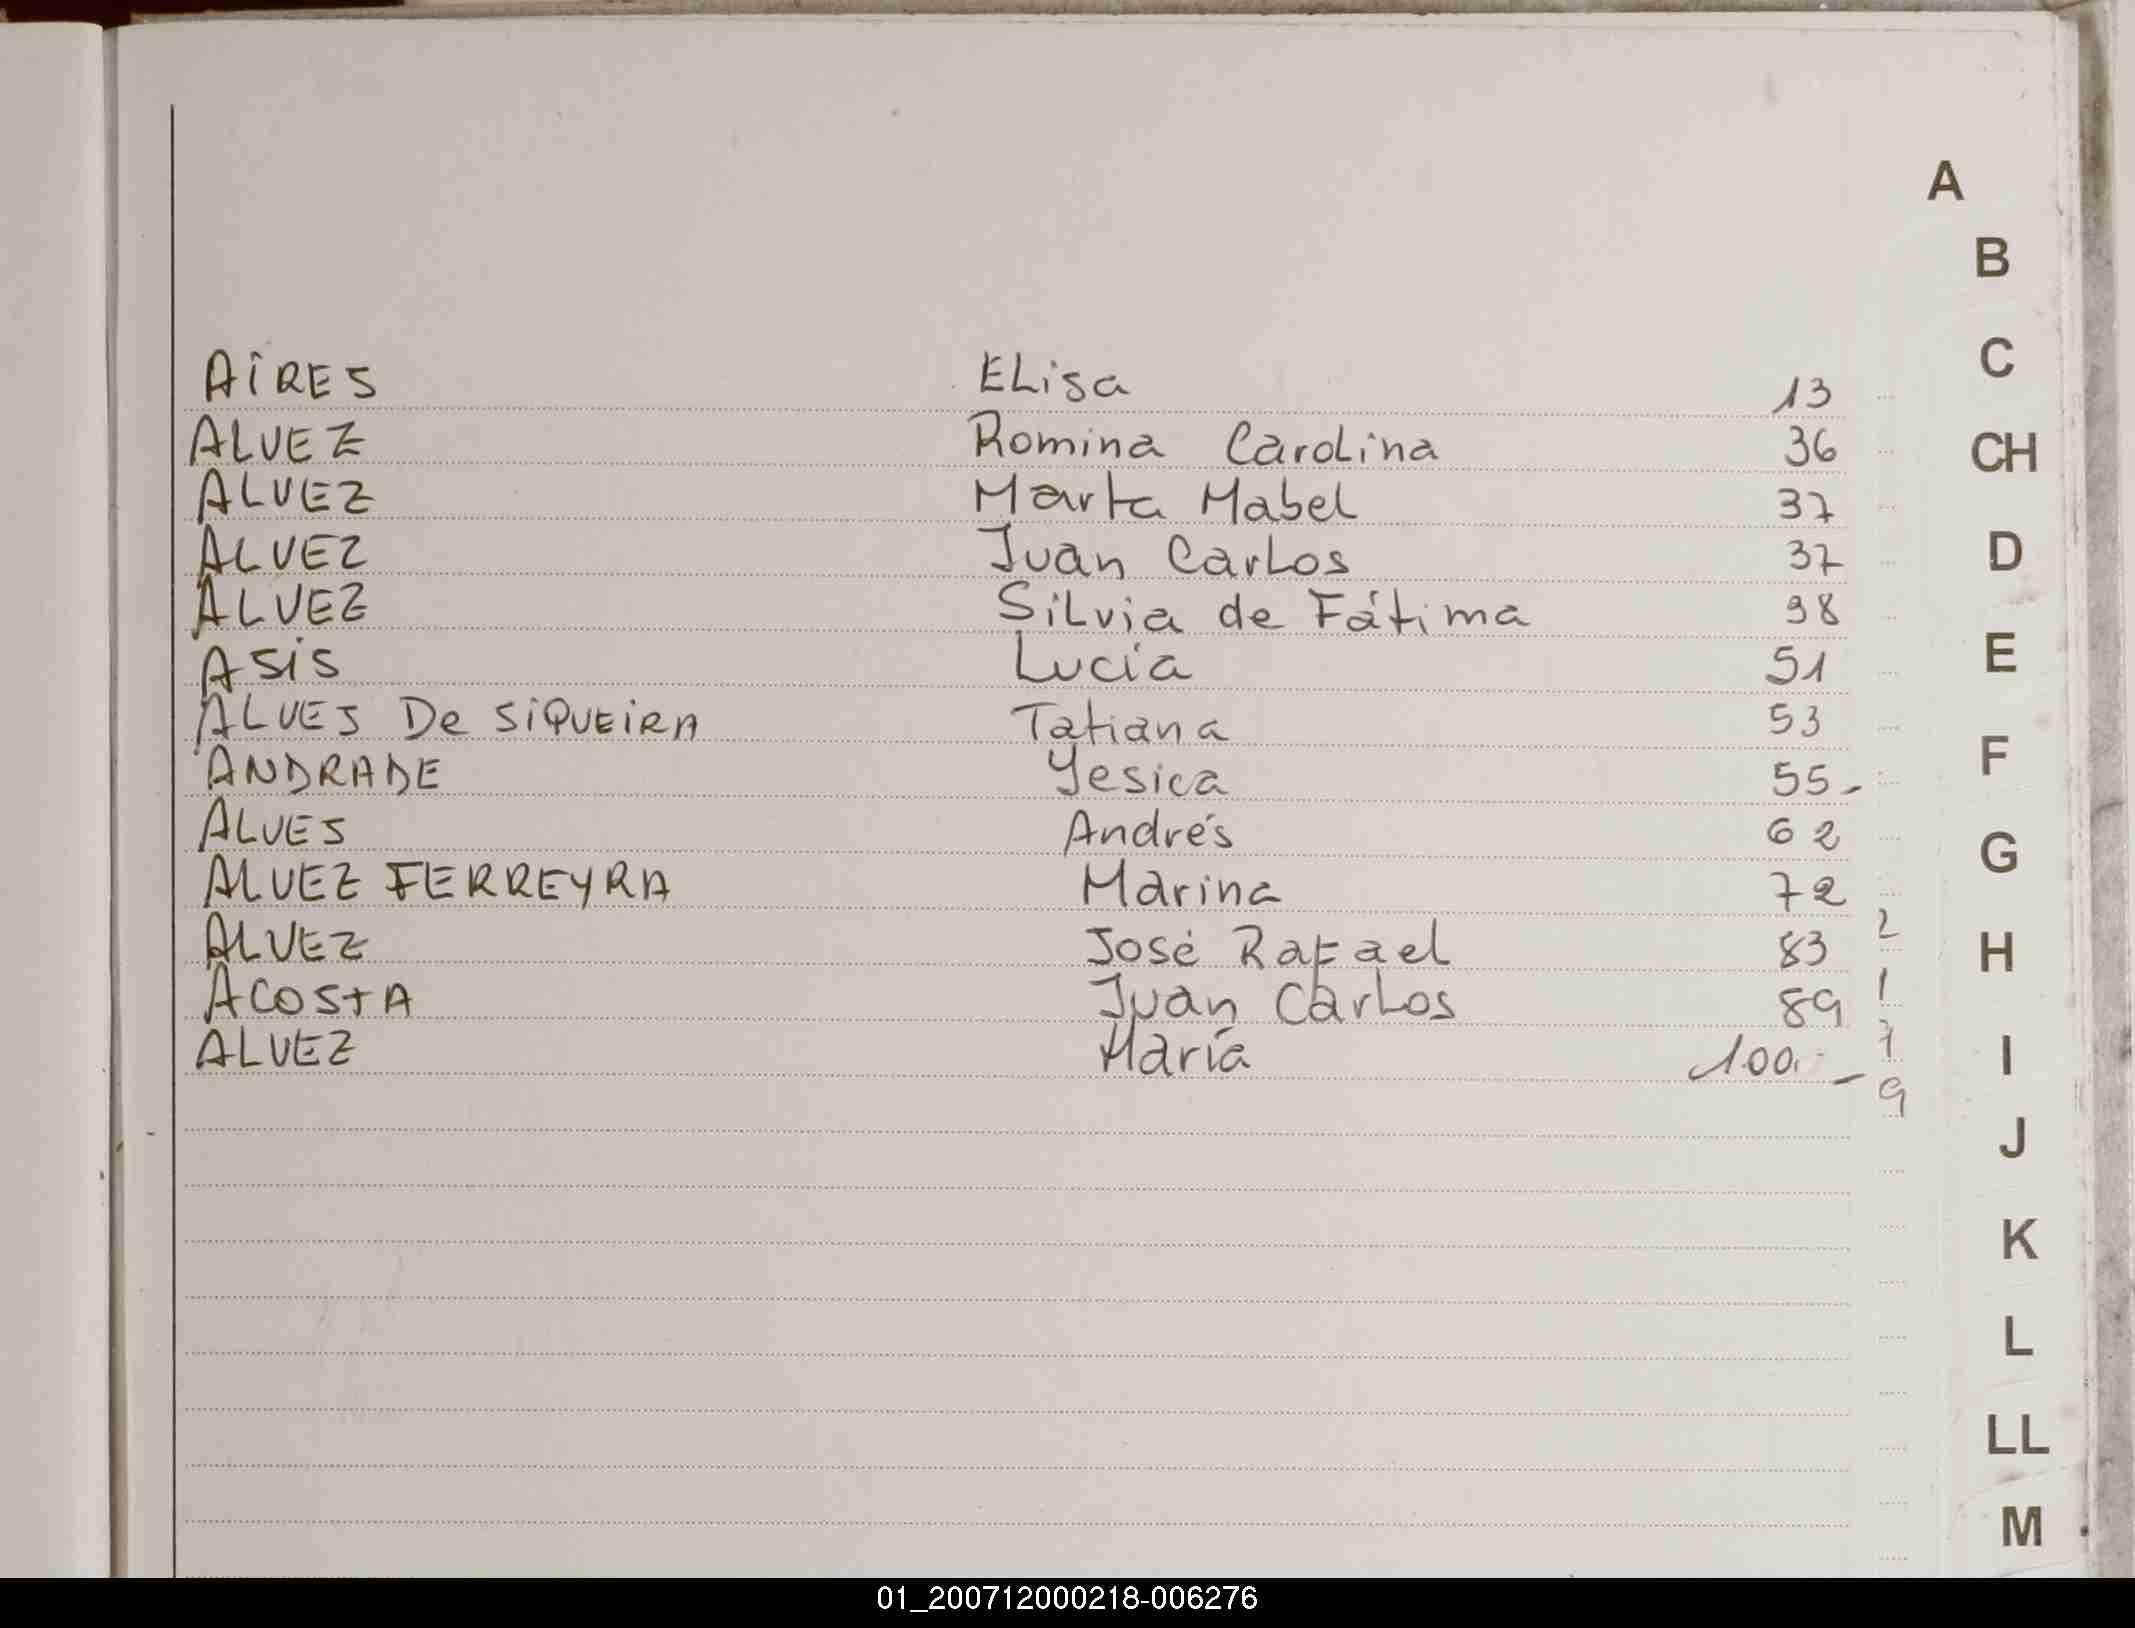 A
B
C
AIRES ELisa 13
ALVEZ Romina CaroLina 36
CH
ALVEZ Marta MabeL 37
ALVEZ Juan CarLos 37
D
ALVEZ SiLvia de Fátima 38
ASIS Lucía 51
E
ALVES De SiQUEiRA Tatiana 53
ANDRADE Yesica 55-
F
ALVES Andrés 62
G
ALVEZ FERREYRA Marina 72
ALVEZ José Rafael 83 2
H
ACOSTA Juan CarLos 89 1
ALVEZ María 100.- 7
I
9
J
K
L
LL
M
01_200712000218-006276